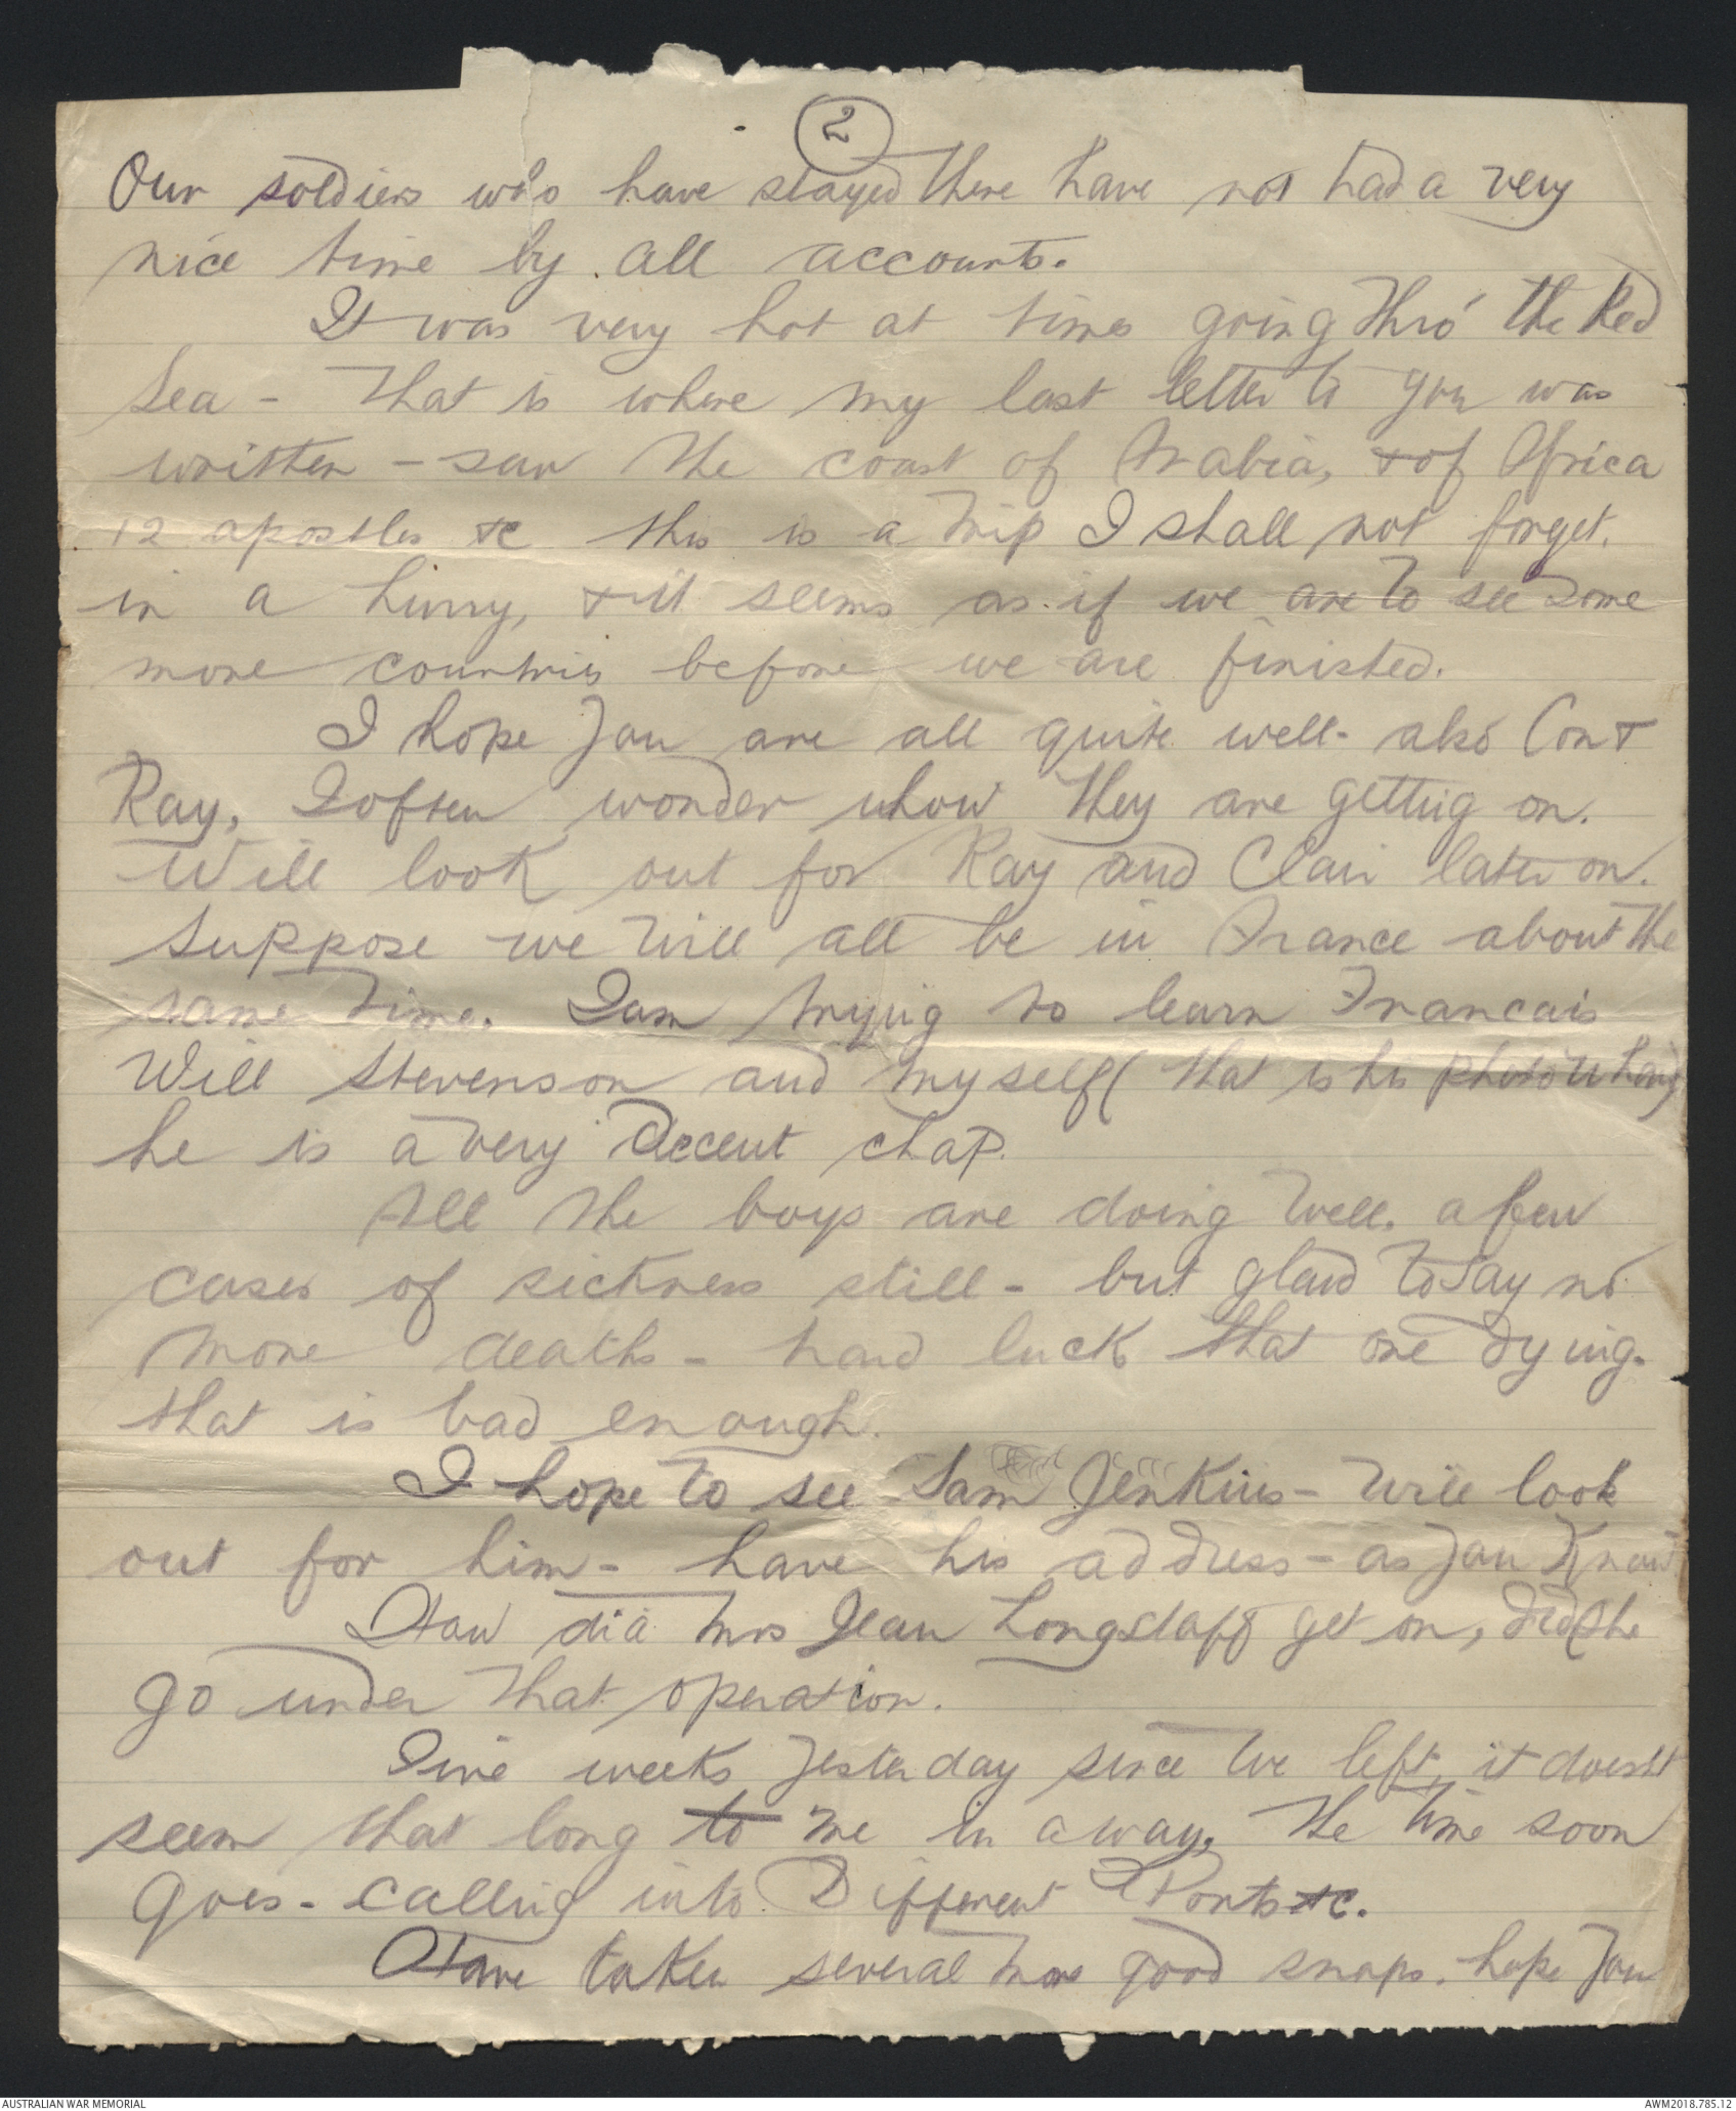 2
Our soldiers who have stayed there have not had a very
nice time by all accounts.
It was very hot at times going thro' the Red
Sea - that is where my last letter to you was
written - saw the coast of Arabia, & of Africa
12 apostles &c this is a trip I shall not forget.
in a hurry, & it seems as if we are to see some
more countries before we are finished.
I hope you are all quite well - also Con &
Ray, I often wonder how they are getting on.
Will look out for Ray and Clair later on.
Suppose we will all be in France about the
same time. I am trying to learn Francais
Will Stevenson and myself (that is his photo
he is a very decent chap.
All the boys are doing well. a few
cases of sickness still - but glad to say no
more deaths - hard luck that one dying.
that is bad enough.
I hope to see Sam Jenkins - will look
out for him - have his address - as you know
How did Mrs Jean Longstaff get on, did she
go under that operation.
Five weeks yesterday since we left, it doesn't
seem that long to me in a way, the time soon
goes - calling into Different Ports &c.
Have taken several more good snaps. hope you
AUSTRALIAN WAR MEMORIAL
AWM2018.785.12